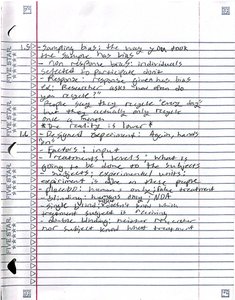 1.5 - Sampling bias: the way you took
the sample has bias
- non response bias: individuals
selected to participate don't
- Response: response given has bias
Ex: Researcher asks "how often do
you recycle?"
People say they recycle "every day"
but they actually only recycle
once a month
* the reality is lower *
1.6 - Designed Experiment: Again, hands
on
- Factors: input
- Treatments: levels: what is
going to be done to the subjects
- subjects: experimental units:
experiment is done on these people
- placebo: humans only; false treatment
- blinding: humans only; NDA
- single blind: doesn't know which
treatment subject is receiving
- double blinding: neither researcher
nor subject know what treatment
FIVE STAR
FIVE STAR
FIVE STAR
FIVE STAR